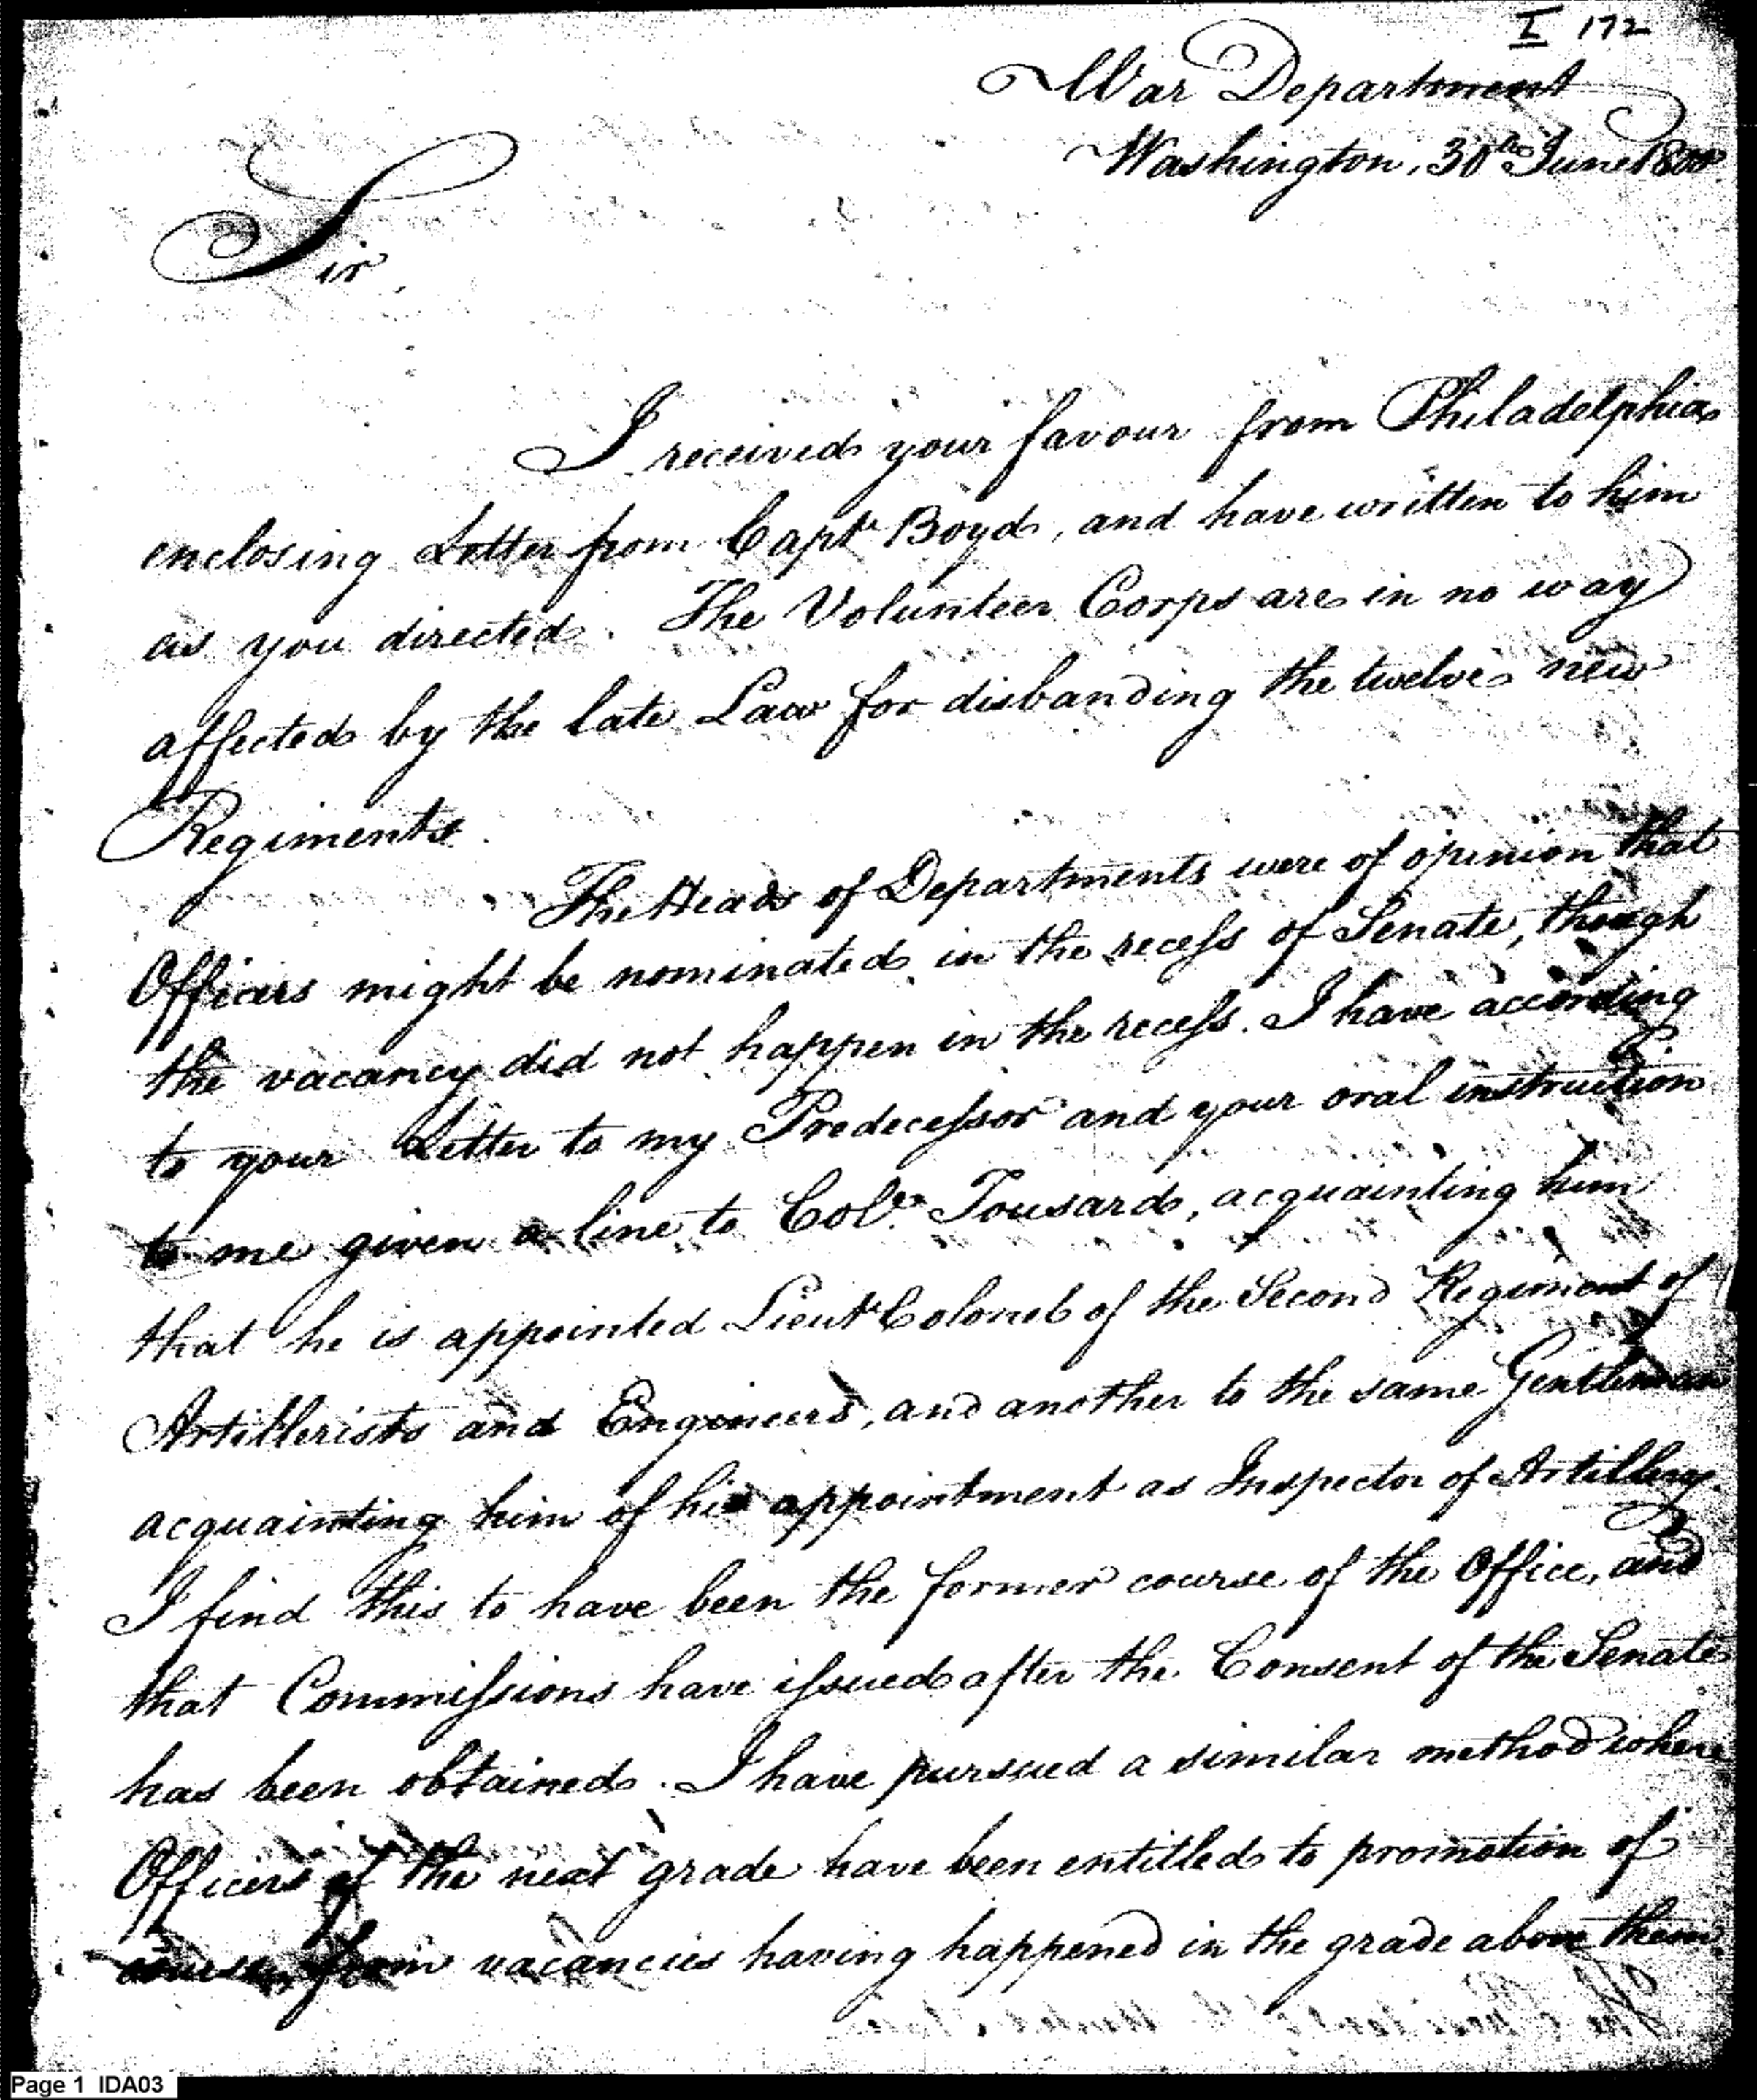 I 172
War Department
Washington, 30th June 1800.
Sir
I received your favour from Philadelphia
enclosing Letter from Capt. Boyd, and have written to him
as you directed. The Volunteer Corps are in no way
affected by the late Law for disbanding the twelve new
Regiments.
The Heads of Departments were of opinion that
Officers might be nominated in the recess of Senate, though
the vacancy did not happen in the recess. I have according
to your Letter to my Predecessor and your oral instruction
to me given a line to Col. Tousard, acquainting him
that he is appointed Lieut. Colonel of the Second Regiment of
Artillerists and Engineers, and another to the same Gentleman
acquainting him of his appointment as Inspector of Artillery.
I find this to have been the former course of the Office, and
that Commissions have issued after the Consent of the Senate
has been obtained. I have pursued a similar method where
Officers of the next grade have been entitled to promotion of
course from vacancies having happened in the grade above them.
Page 1 IDA03